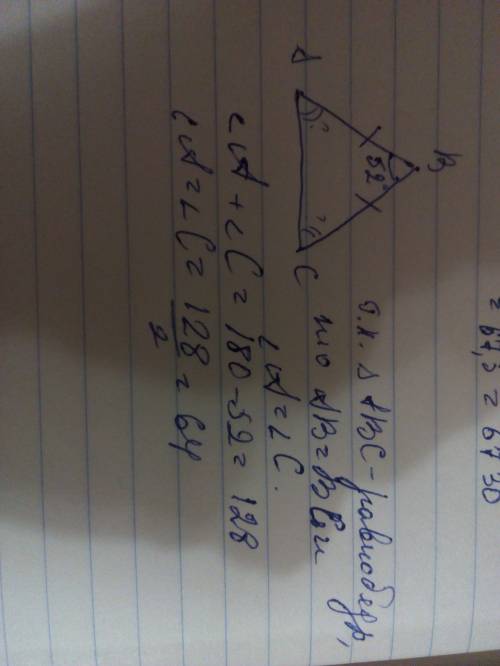 = 67,5 = 67 30
B
52°
A
C
т.к. Δ ABC - равнобедр,
то AB = BC и
∠A = ∠C.
∠A + ∠C = 180 - 52 = 128
∠A = ∠C = 128/2 = 64